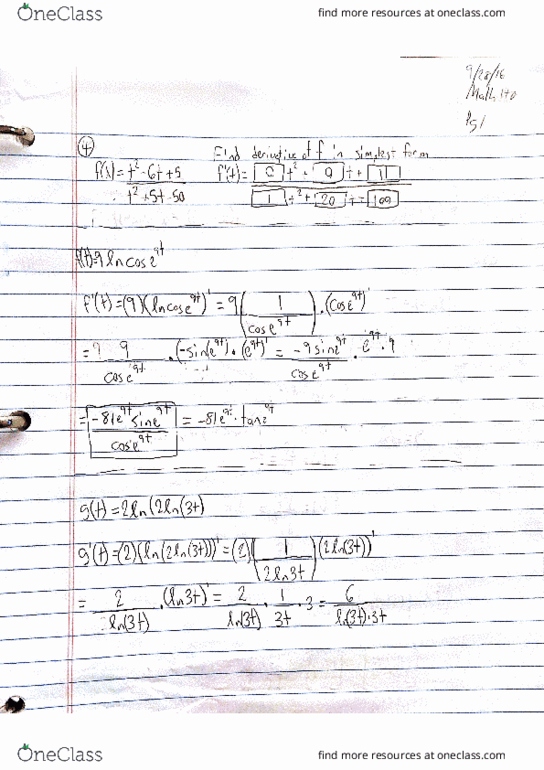 OneClass find more resources at oneclass.com
9/28/16
Math 170
pg 1
④ Find derivative of f in simplest form
f(t)= t² - 6t + 5 f'(t)= 0 t² + 9 t + 1
t² + 5t - 50 1 t² + 20 t = 100
f(t)=9 ln cos e^9t
f'(t)=(9)(ln cos e^9t)' = 9(1/cos e^9t)·(cos e^9t)'
= 9/cos e^9t · (-sin(e^9t)·(e^9t)' = -9 sin e^9t/cos e^9t · e^9t · 9
= -81e^9t sin e^9t/cos e^9t = -81e^9t · tan e^9t
g(t)=2ln(2ln(3t)
g'(t)=(2)(ln(2ln(3t)))' = (2)(1/2 ln 3t)(2ln(3t))'
= 2/ln(3t) · (ln 3t)' = 2/ln(3t) · 1/3t · 3 = 6/ln(3t)·3t
OneClass find more resources at oneclass.com